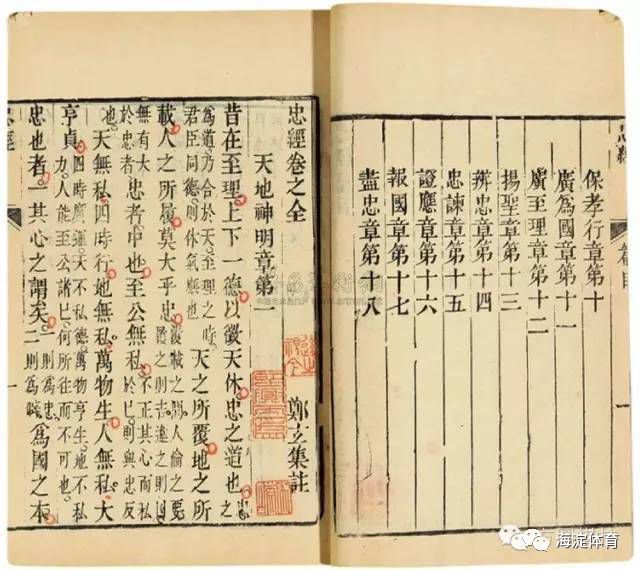 忠經 卷目 一
保孝行章第十
廣為國章第十一
廣至理章第十二
揚聖章第十三
辨忠章第十四
忠諫章第十五
證應章第十六
報國章第十七
盡忠章第十八
忠經卷之全
天地神明章第一 鄭玄集註
昔在至理上下一德以徵天休忠之道也忠之
為道乃合於天至理之時君臣同德則 天之所覆地之所
載人之所履莫大乎忠覆載之間人倫之要履之則吉違之則凶
無有大於忠者忠者中也至公無私不正其心而私於己則與忠反
天無私四時行地無私萬物生人無私大
亨貞四時廣運天不私德萬物亨生地不私力人能至公諸己何所往而不可也
忠也者一其心之謂矣一則為忠二則為僻為國之本
忠經 一
海淀体育